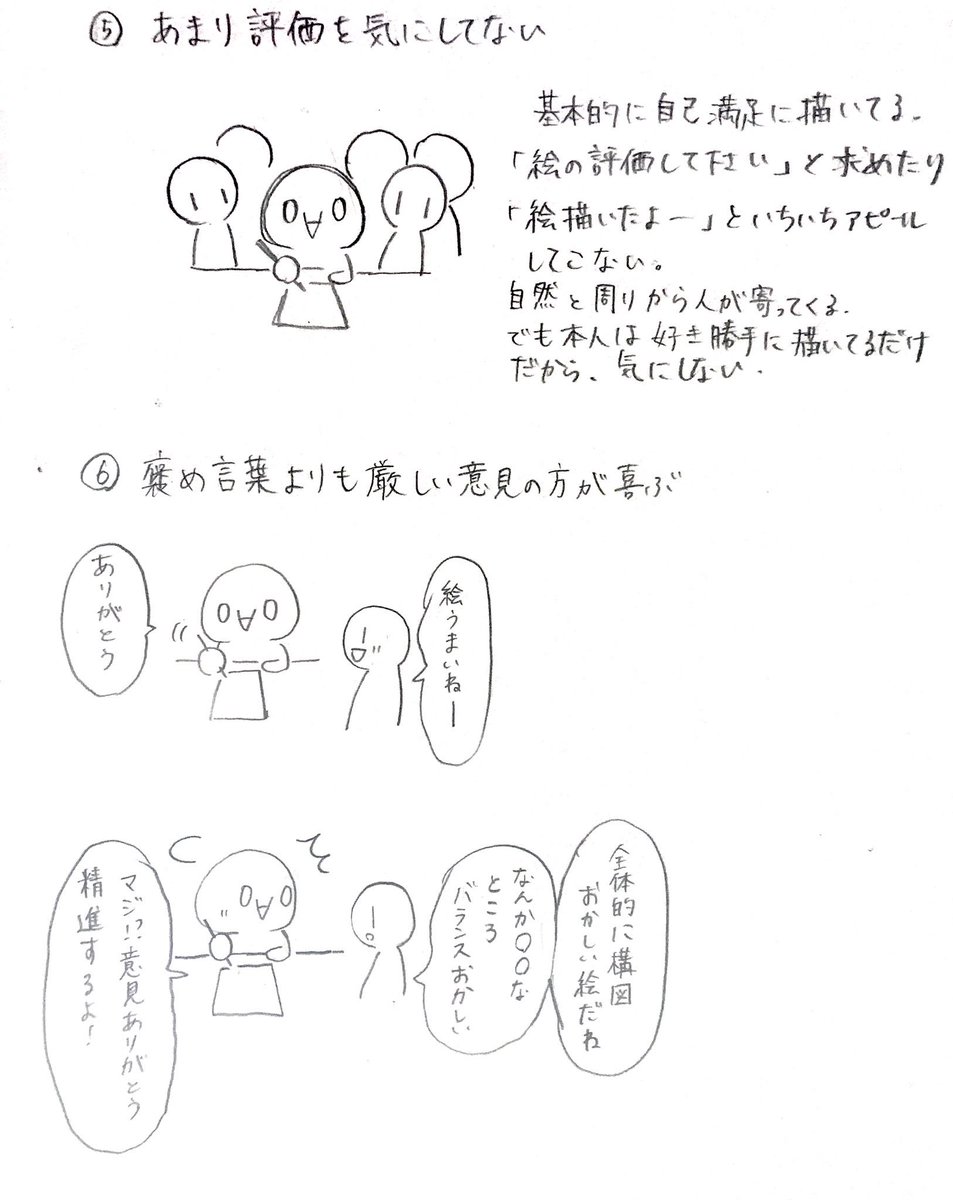 ⑤ あまり評価を気にしてない
基本的に自己満足に描いてる.
「絵の評価して下さい」と求めたり
「絵描いたよー」といちいちアピール
してこない。
自然と周りから人が寄ってくる.
でも本人は好き勝手に描いてるだけ
だから、気にしない.
⑥ 褒め言葉よりも厳しい意見の方が喜ぶ
絵うまいねー
ありがとう
全体的に構図
おかしい絵だね
なんか〇〇な
ところ
バランスおかしい
マジっ!?意見ありがとう
精進するよ!